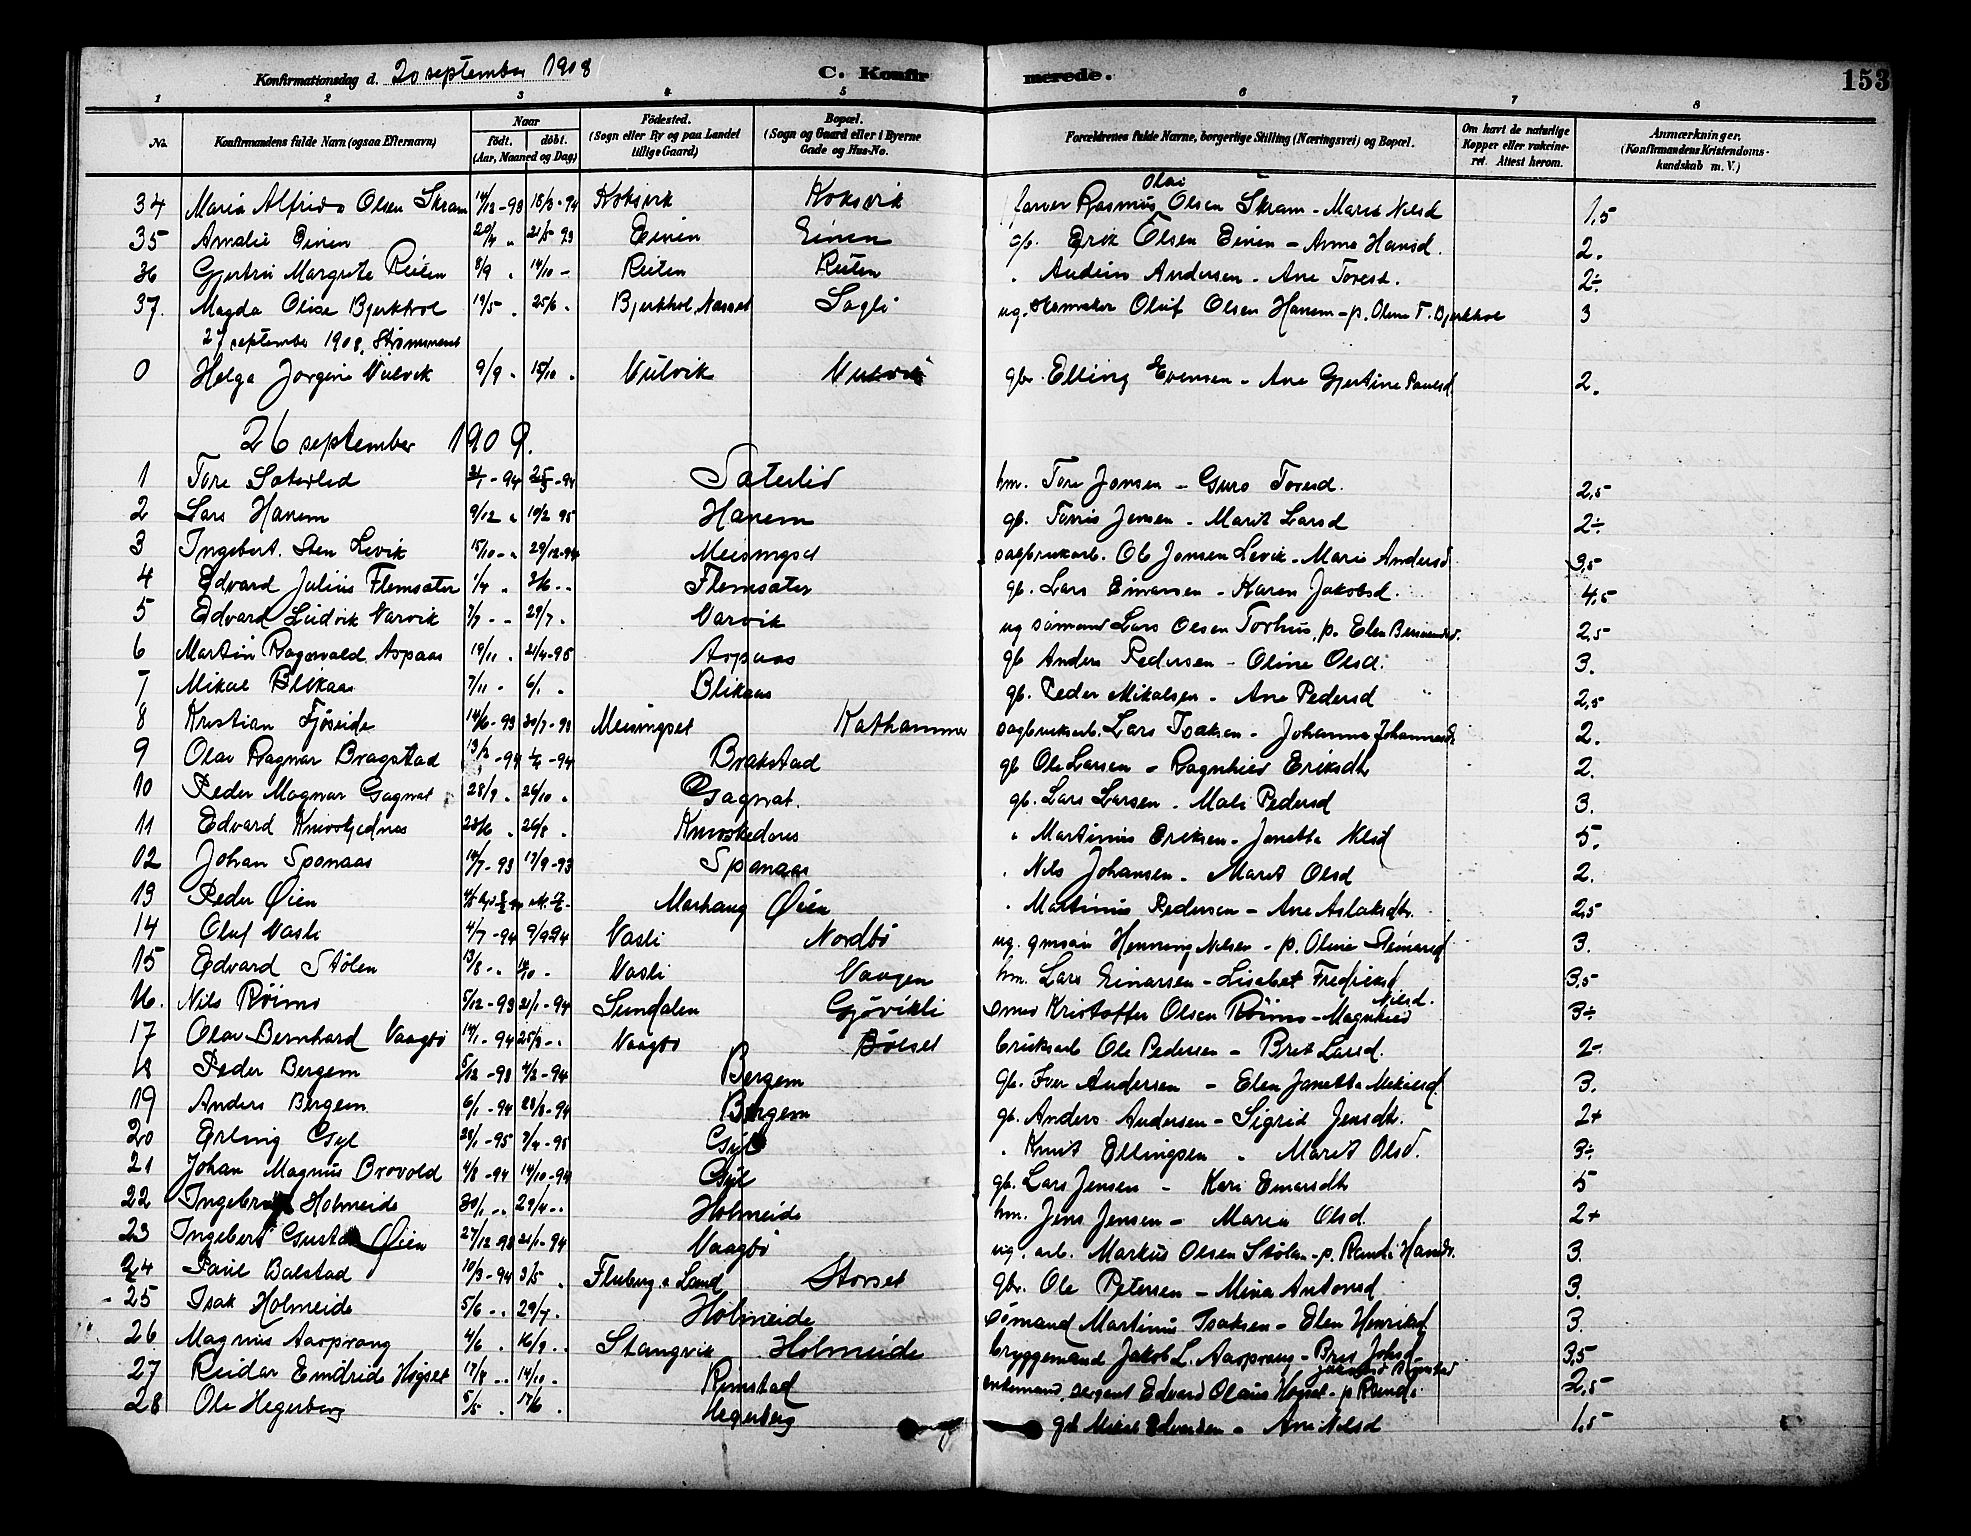 Konfirmationsdag d. 20 september 1908 C. Konfirmerede. 153
1 2 3 4 5 6 7 8
No. Konfirmandens fulde Navn (ogsaa Efternavn) Naar født. døbt. (Aar, Maaned og Dag) Fødested. (Sogn eller By og paa Landet tillige Gaard) Bopæl. (Sogn og Gaard eller i Byerne Gade og Hus-No. Forældrenes fulde Navne, borgerlige Stilling (Næringsvei) og Bopæl. Om havt de naturlige Kopper eller vakcineret. Attest herom. Anmærkninger. (Konfirmandens Kristendomskundskab m. V.)
34 Maria Alfrida Olsen Skram 18/3-94 Koksvik Koksvik farver Rasmus Olai Olsen Skram - Marit Nilsd 1,5
35 Amalie Einen 20/4 " 21/5 93 Einen Einen gb. Erik Olsen Einen - Anna Hansd. 2.
36 Gjertru Margrete Reiten 8/9 . 14/10 - Reiten Reiten . Audun Andersen - Ane Toresd. 2÷
37. Magda Olise Bjerkhol 19/5 . 25/6 . Bjerkhol, Sagli ug. Oluf Olsen Hanem - p. Olene T. Bjerkhol 3
27 september 1908, Strømmen
0 Helga Jørgine Vulvik 9/9 . 15/10 . Vulvik Vulvik gbr. Elling Evensen - Ane Gjertine Paulsd 2.
26 september 1909.
1 Tore Sæterlid -94 -94 Sæterlid hm. Tore Jonsen - Guro Toresd. 2,5
2 Lars Hanem 9/12 " 19/2 95 Hanem gb. Tørris Jensen - Marit Larsd 2÷
3 Ingebert. Sten Levik 15/10 - " 29/12-94 Meisingset sagbrukarb. Ole Jonsen Levik - Marie Andersd. 3,5
4 Edvard Julius Flemsæter 1/4 . Flemsæter gb. Lars Einarsen - Karen Jakobsd. 4,5
5 Edvard Ludvik Varvik 7/7 - - 29/7 . Varvik ug sømand Lars Olsen Torhus, p. Elen 2,5
6 Martin Ragnvald Aspaas 19/11 . 21/4-95 Aspaas gb Anders Pedersen - Oline Olsd. 3.
7 Mikal Blikaas 7/11 - 6/1 . Blikaas gb. Peder Mikalsen - Ane Pedersd 2,5
8 Kristian Fjøseide 14/6-93 30/7-93 Meisingset Kathammer sagbruksarb. Lars Isaksen - Johanna Johannesd. 2.
9 Olav Ragnar Bragstad -94 -94 Brakstad gb Ole Larsen - Ragnhild Eriksdtr 2.
10 Peder Magnar Gagnat 28/9 . 26/10 . Gagnat. gb. Lars Larsen - Mali Pedersd 3.
11 Edvard Knivskjednes 28/6 . 26/8 . " Martinus Eriksen - Janetta Nilsd 5.
12 Johan Sponaas 14/7-93 17/9-93 Sponaas . Nils Johansen - Marit Olsd 2.
13 Peder Øien Marhaug Øien . Martinus Pedersen - Ane Aslaksdtr. 2,5
14 Oluf Vasli 4/7-94 9/9 94 Vasli Nordbø ug. Henning Nilsen - p. Oline Steinarsd 3.
15 Edvard Stølen 13/8 - . Vasli Vaagen hm. Lars Einarsen - Lisabet Fredriksd 3,5
16. Nils Røimo 5/12-93 21/1-94 Sundalen Gjøvikli Kristoffer Olsen Røimo - Magnhild Nilsd. 3÷
17 Olav Bernhard Vaagbø 14/1-94 25/3 - . Vaagbø Bølset bruksarb Ole Pedersen - Brit Larsd. 2÷
18 Peder Bergem 5/12-93 4/2-94 Bergem gb. Iver Andersen - Elen Janetta Mikalsd. 3.
19 Anders Bergem 6/1-94 28/3-94 Bergem gb. Anders Andersen - Sigrid Jensdtr. 2+
20 Erling Gyl 24/1-95 7/4-95 Gyl . Knut Ellingsen - Marit Olsd. 3÷
21 Johan Magnus Brovold 4/8-94 14/10-94 Gyl gb. Lars Jensen - Kari Einarsdtr 5
22 Holmeide 30/1 - . 29/4 - . Holmeide hm. Jens Jensen - Maria Olsd. 2+
23 Ingebert Gustav Øien 27/12-93 21/1-94 Vaagbø ug. arb. Markus Olsen Stølen - p. Randi Hansd. 3.
24 Paul Balstad 10/3-94 3/5 . Fluberg i Land Storset gbr. Ole Petersen - Mina Antonsd 3.
25 Isak Holmeide 5/6 . . 29/7 . Holmeide sømand Martinus Isaksen - Elen Henriksd 3.
26 Magnus Aasprang 4/6 . 16/9 . . Stangvik Holmeide bryggemand Jakob L. Aasprang - Brit Johsd 3,5
27 Reidar Emdrid Høgset 17/8 . . 14/10 . Rimstad enkemand, sergeant Edvard Olaus Høgset - p Randi 2,5
28 Ole Hegerberg 5/5 . 17/6 . Hegerberg gb Mikal Edvardsen - Ane Nilsd 1,5